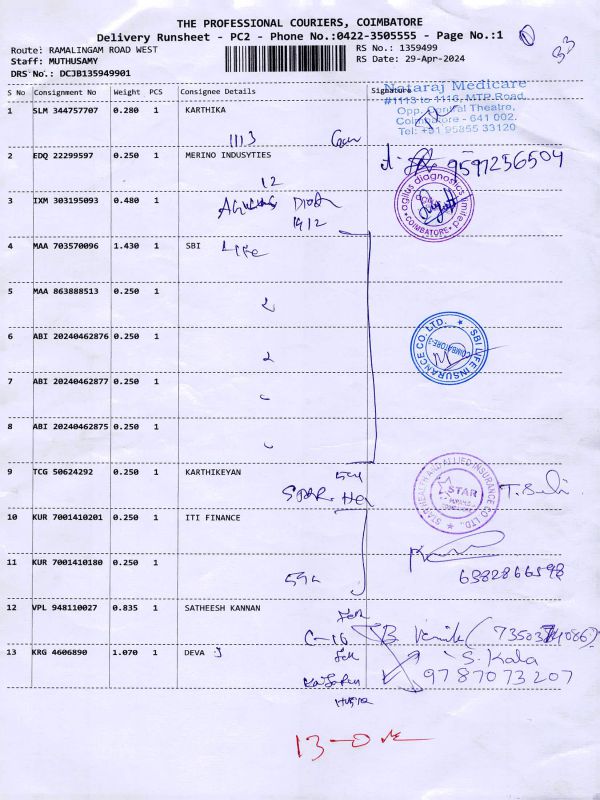 THE PROFESSIONAL COURIERS, COIMBATORE
Delivery Runsheet - PC2 - Phone No.:0422-3505555 - Page No.:1
33
Route: RAMALINGAM ROAD WEST
RS No.: 1359499
Staff: MUTHUSAMY
RS Date: 29-Apr-2024
DRS No.: DCJB135949901
S No Consignment No Weight PCS Consignee Details Signature
Nataraj Medicare
#1113 to 1116, MTP Road,
Opp. Central Theatre,
Coimbatore - 641 002.
Tel: +91 95855 33120
1 SLM 344757707 0.280 1 KARTHIKA
1113
2 EDQ 22299597 0.250 1 MERINO INDUSYTIES
9597256504
12
3 IXM 303195093 0.480 1
agilus diagnostics limited
COIMBATORE
1912
4 MAA 703570096 1.430 1 SBI Life
5 MAA 863888513 0.250 1
6 ABI 20240462876 0.250 1
SBI LIFE INSURANCE CO. LTD.
COIMBATORE-3
7 ABI 20240462877 0.250 1
8 ABI 20240462875 0.250 1
9 TCG 50624292 0.250 1 KARTHIKEYAN
STAR HEALTH AND ALLIED INSURANCE CO. LTD.
STAR
STAR. Hea
10 KUR 7001410201 0.250 1 ITI FINANCE
11 KUR 7001410180 0.250 1
6382866598
12 VPL 948110027 0.835 1 SATHEESH KANNAN
C-16
13 KRG 4606890 1.070 1 DEVA J
S. Kala
9787073207
13-